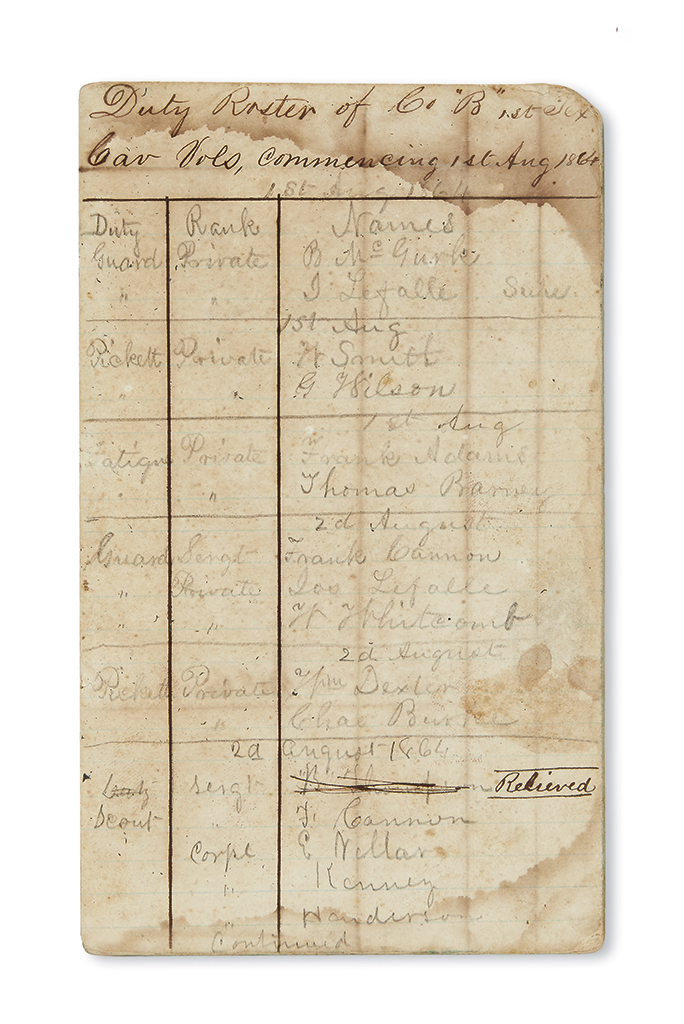 Duty Roster of Co "B" 1st Tex
Cav Vols, commencing 1st Aug 1864
1st Aug 1864
Duty Rank Names
Guard Private B McGurk
" " J Lefalle
1st Aug
Pickett Private W Smith
" G Wilson
1st Aug
Fatigue Private Frank Adams
" " Thomas Barney
2d August
Guard Sergt Frank Cannon
" Private Jos Lefalle
" " W Whitcomb
2d August
Pickett Private Wm Dexter
" Chas Burke
2d August 1864
Sergt Relieved
Scout " F. Cannon
Corpl E Villar
" Kenney
" Henderson
Continued